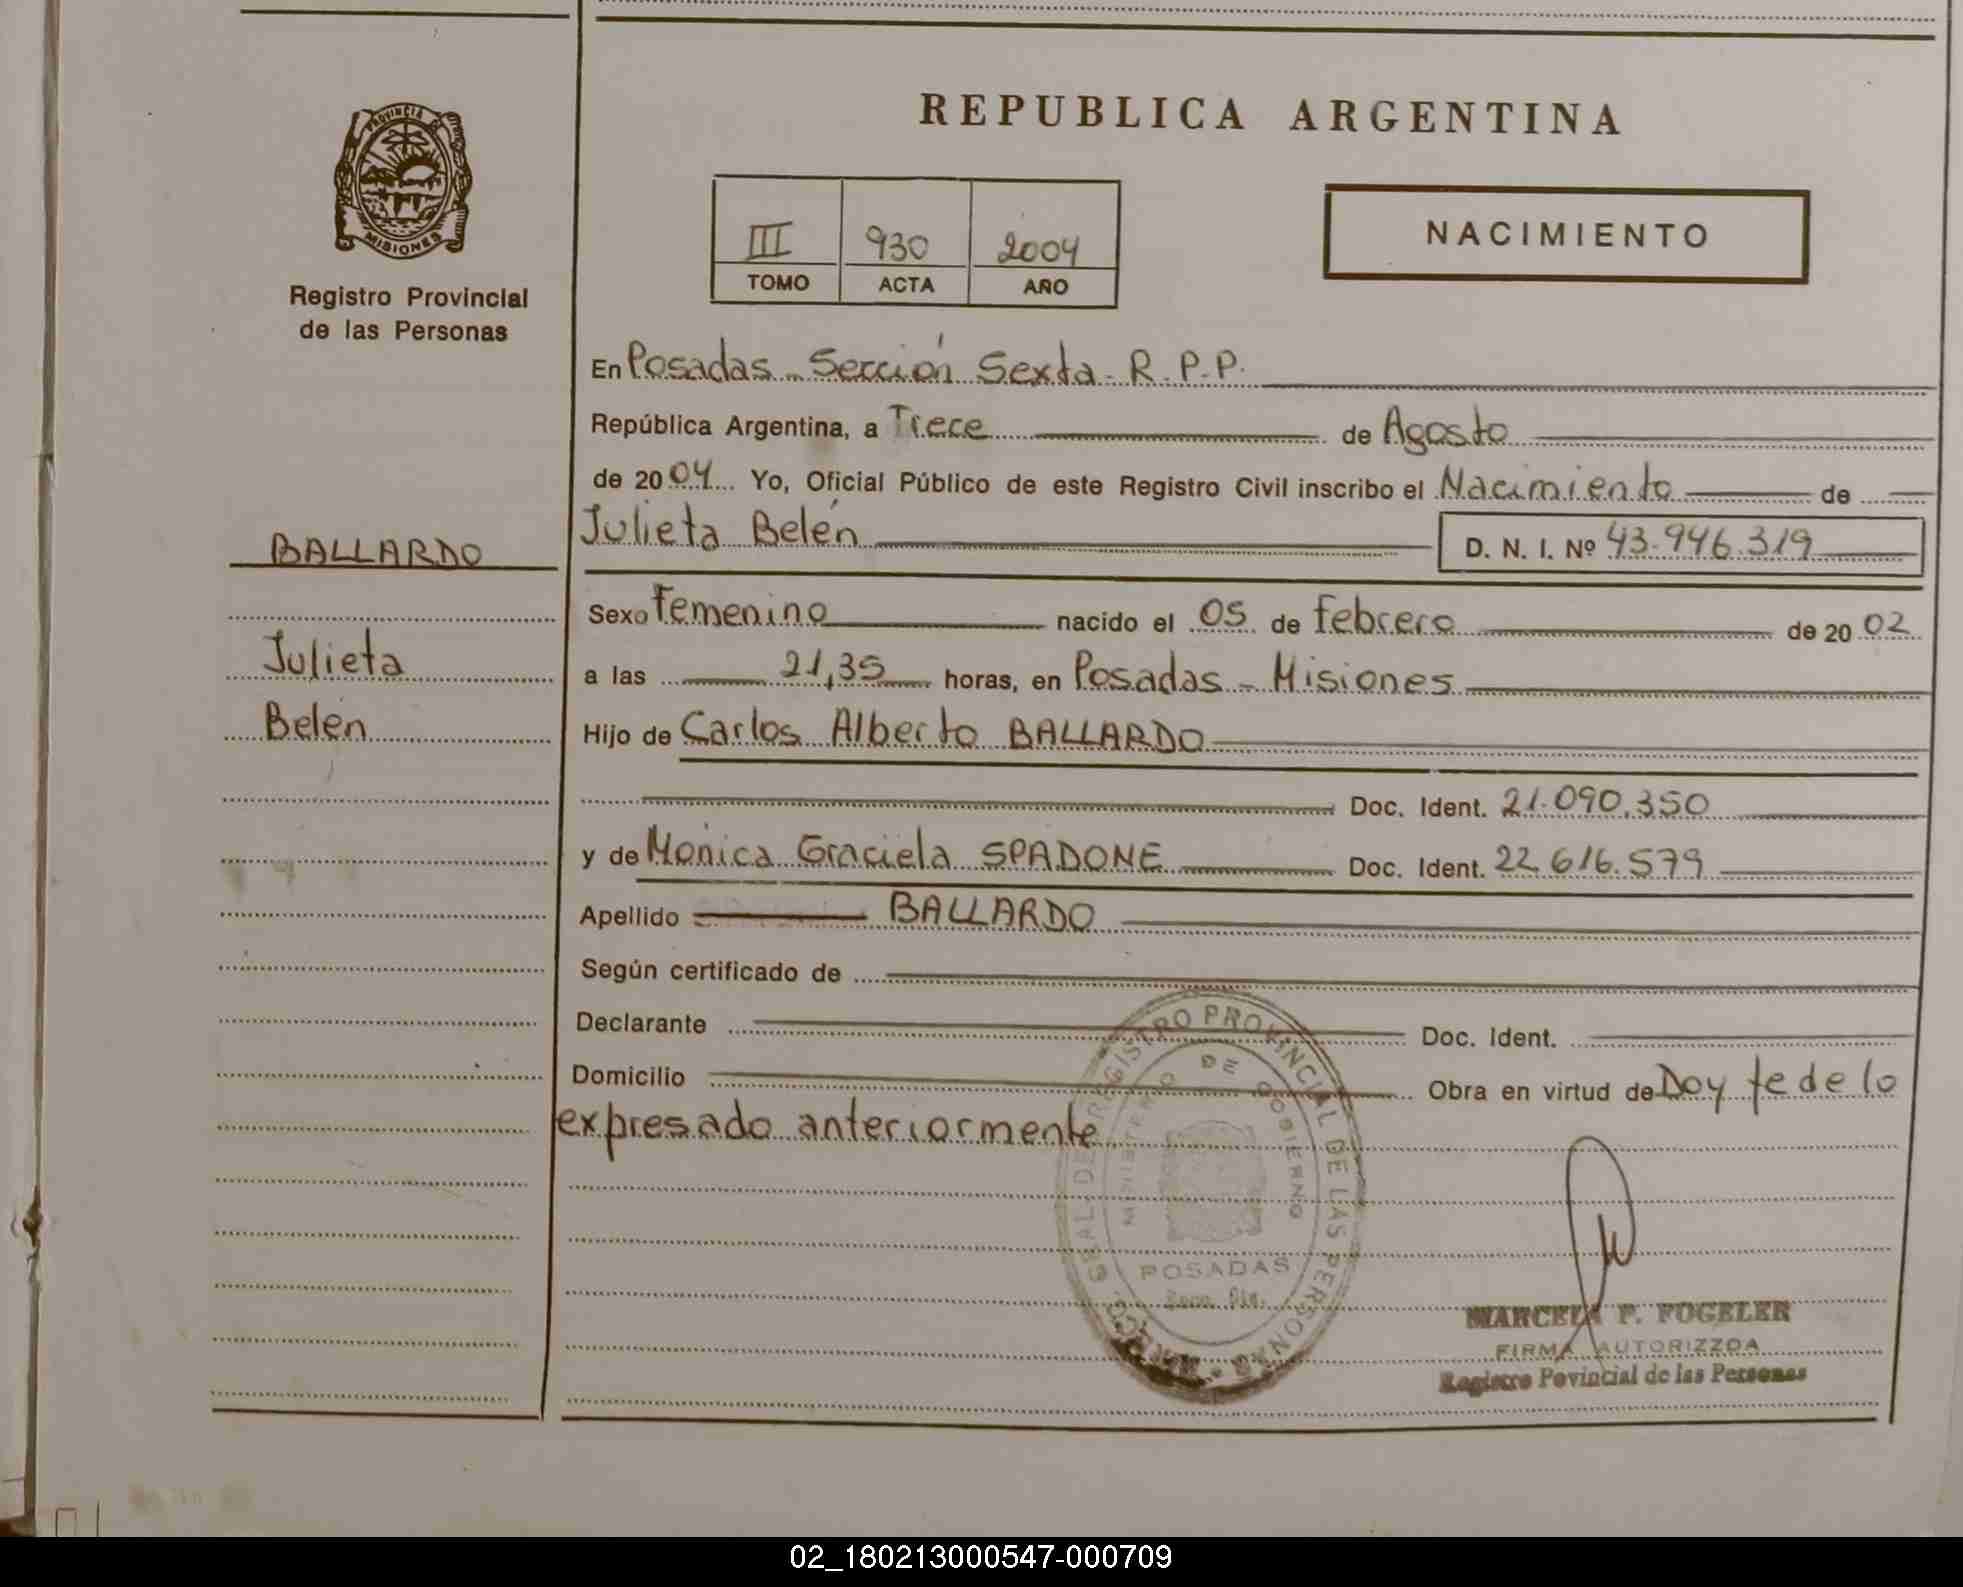 REPUBLICA ARGENTINA
PROVINCIA DE
MISIONES
Registro Provincial
de las Personas
III 930 2004
TOMO ACTA AÑO
NACIMIENTO
En Posadas - Sección Sexta - R.P.P.
República Argentina, a Trece de Agosto
de 2004 Yo, Oficial Público de este Registro Civil inscribo el Nacimiento de
BALLARDO
Julieta Belén D. N. I. Nº 43.946.319
Sexo Femenino nacido el 05 de Febrero de 2002
Julieta
a las 21,35 horas, en Posadas - Misiones
Belén
Hijo de Carlos Alberto BALLARDO
Doc. Ident. 21.090.350
y de Mónica Graciela SPADONE Doc. Ident. 22.616.579
Apellido BALLARDO
Según certificado de
Declarante Doc. Ident.
Domicilio Obra en virtud de Doy fe de lo
expresado anteriormente
REGISTRO PROVINCIAL DE LAS PERSONAS
MINISTERIO DE GOBIERNO
POSADAS
MARCELA P. FOGELER
FIRMA AUTORIZZDA
Registro Povincial de las Personas
02_180213000547-000709